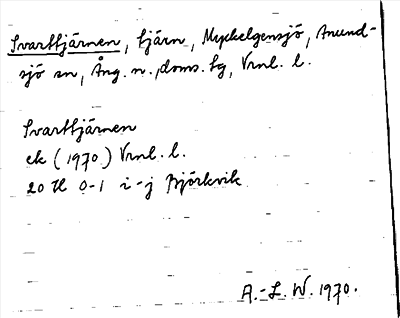 Svarttjärnen, tjärn, Myckelgensjö, Anund-
sjö sn, Ång. n. doms. tg, Vrnl. l.
Svarttjärnen
ek (1970) Vrnl. l.
20 H 0-1 i-j Björkvik
A.-L. W. 1970.